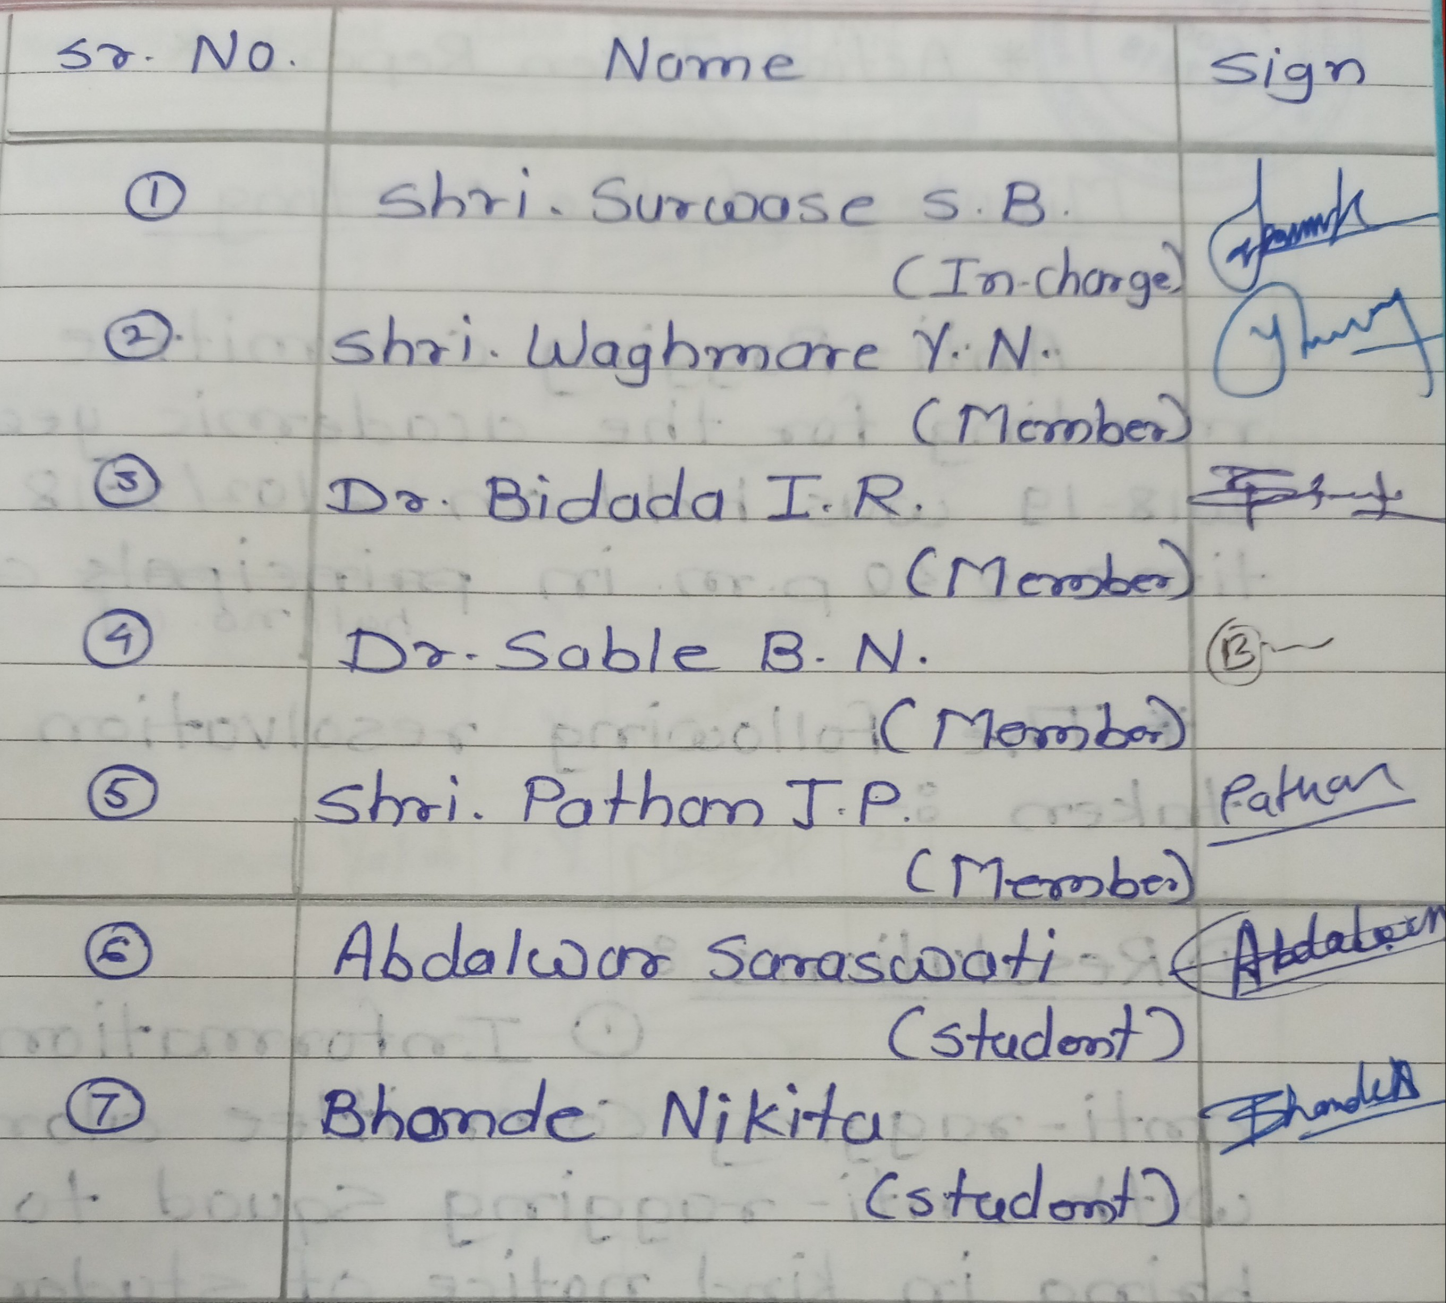 Sr. No. Name Sign
1 Shri. Surwase S. B.
(In-charge)
2. Shri. Waghmare Y. N.
(Member)
3 Dr. Bidada I. R.
(Member)
4 Dr. Sable B. N. B
(Member)
5 Shri. Pathan J. P. Pathan
(Member)
6 Abdalwar Saraswati
(student)
7 Bhande Nikita
(student)